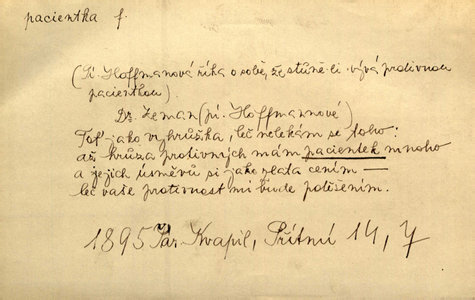 pacientka f.
(Pí. Hoffmanová říká o sobě, že stůně-li bývá protivnou
pacientkou).
Dr. Zeman (pí. Hoffmannové)
Toť jako vy hrůzka, leč nelekám se toho:
ač hrůza protivných mám pacientek mnoho
a jejich úsměvů si jako zlata cením —
leč vaše protivnost mi bude potěšením.
1895 Jar. Kvapil, Přítmí 14, 7